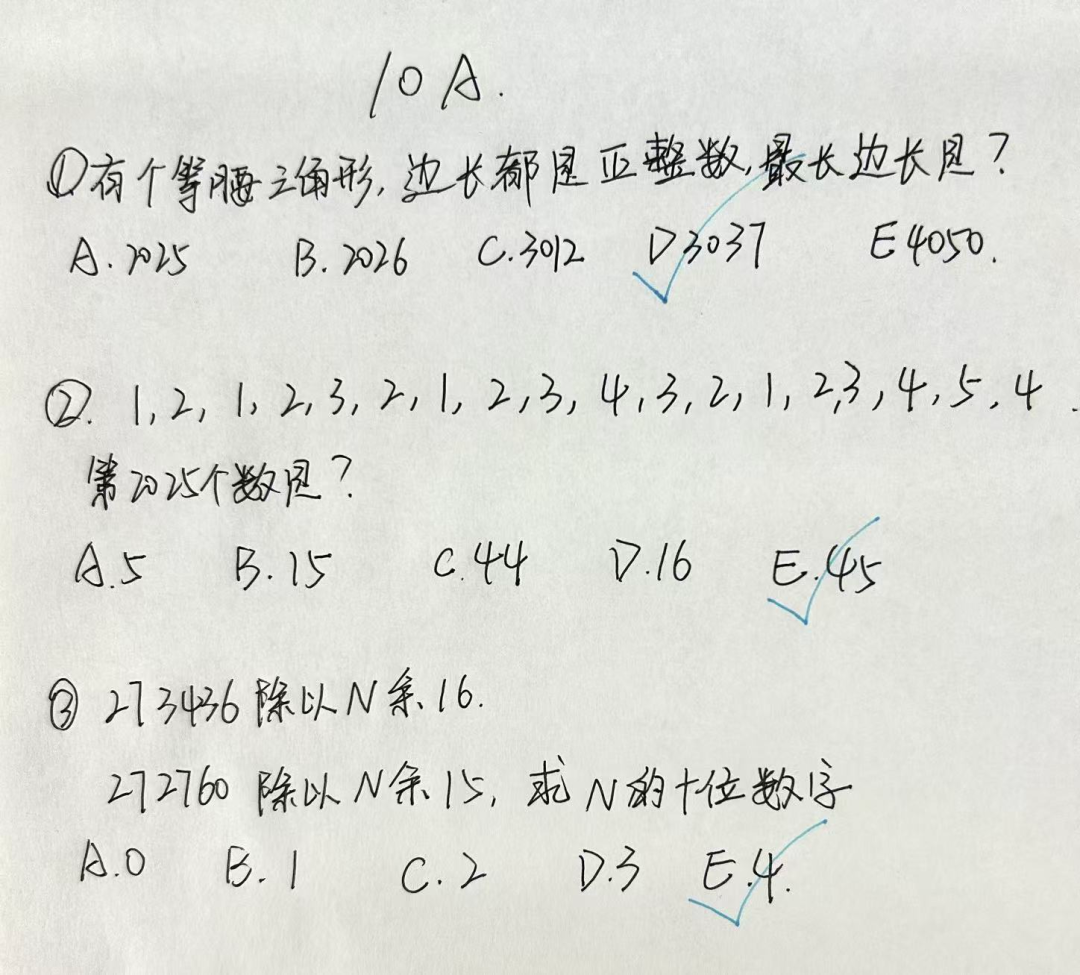 10A.
①有个等腰三角形,边长都是正整数,最长边长是?
A.2025 B.2026 C.3012 D3037 E4050.
②. 1,2,1,2,3,2,1,2,3,4,3,2,1,2,3,4,5,4.
第2025个数是?
A.5 B.15 C.44 D.16 E.45
③ 273436除以N余16.
272760除以N余15,求N的十位数字
A.0 B.1 C.2 D.3 E.4.